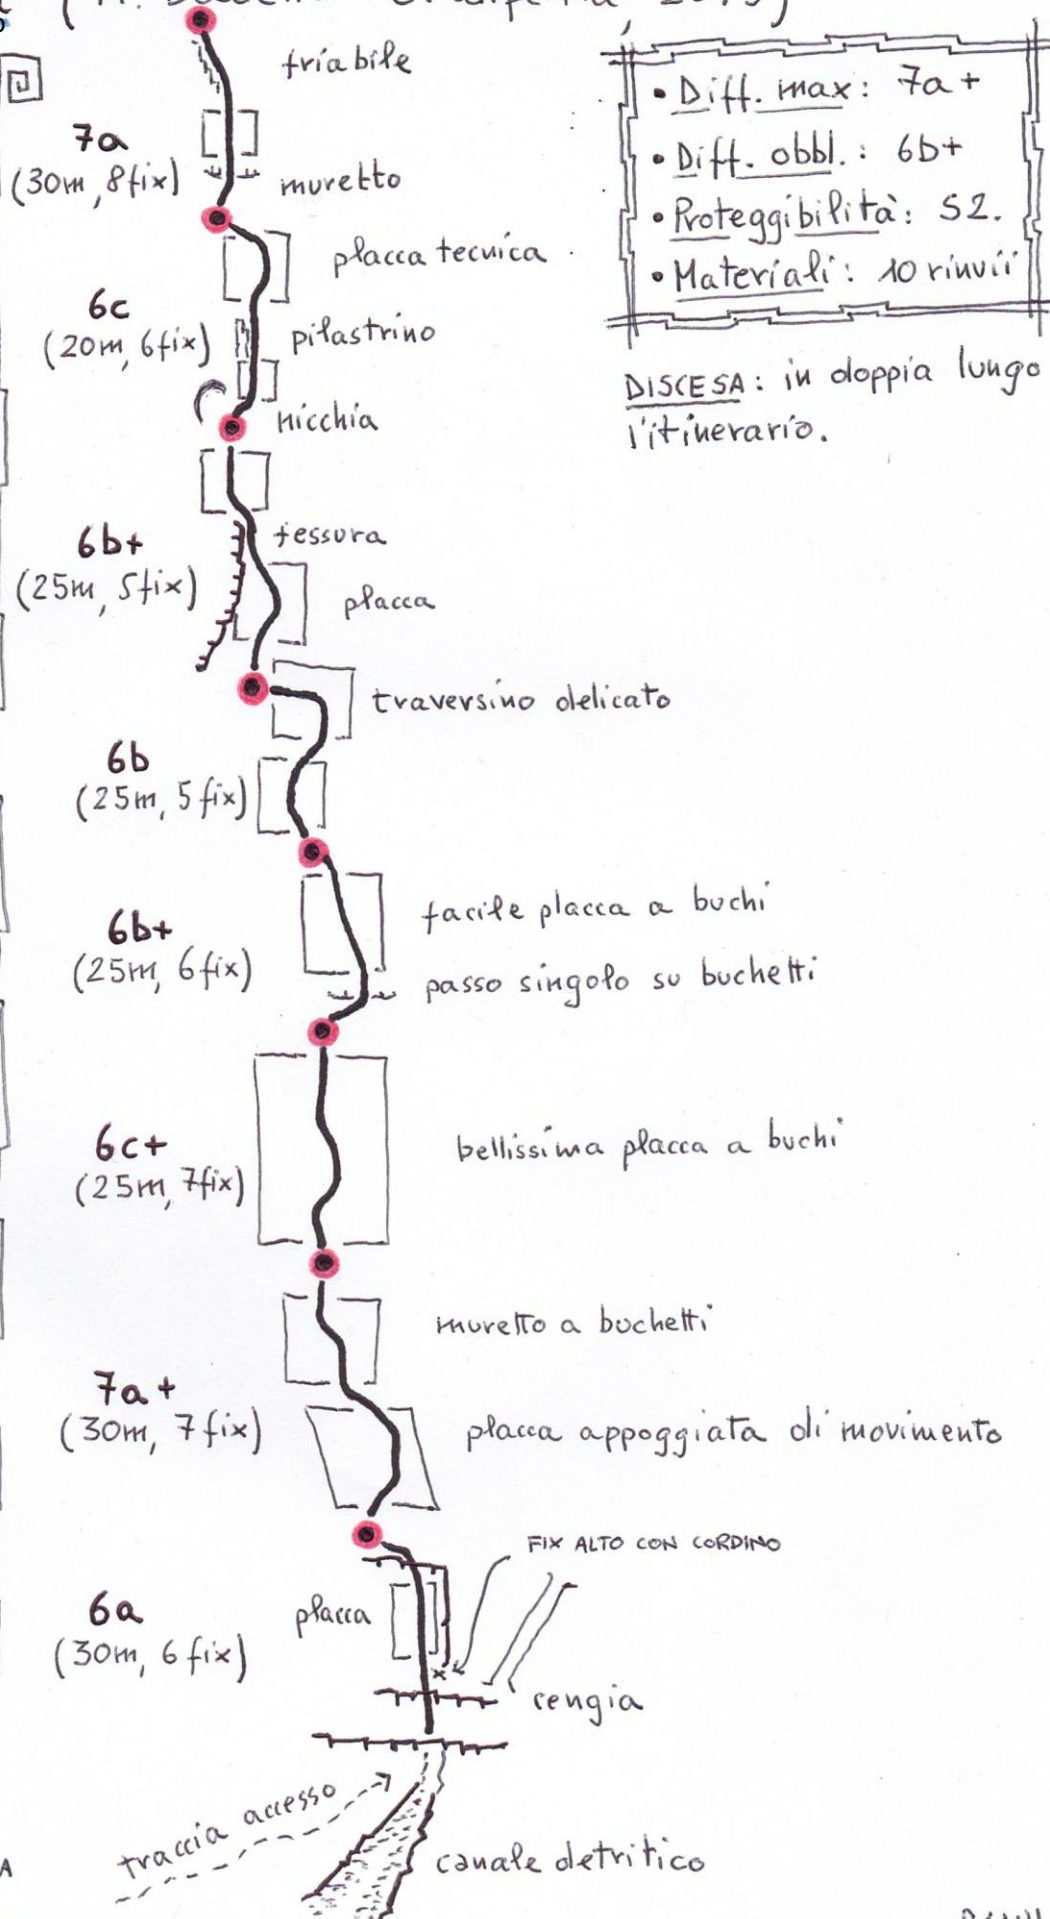 friabile
7a
(30m, 8fix)
muretto
placca tecnica
6c
(20m, 6fix)
pilastrino
nicchia
6b+
(25m, 5fix)
fessura
placca
traversino delicato
6b
(25m, 5fix)
facile placca a buchi
6b+
(25m, 6fix)
passo singolo su buchetti
6c+
(25m, 7fix)
bellissima placca a buchi
muretto a buchetti
7a+
(30m, 7fix)
placca appoggiata di movimento
FIX ALTO CON CORDINO
6a
(30m, 6fix)
placca
cengia
traccia accesso
canale detritico
• Diff. max: 7a+
• Diff. obbl.: 6b+
• Proteggibilità: S2.
• Materiali: 10 rinvii
DISCESA: in doppia lungo
l'itinerario.